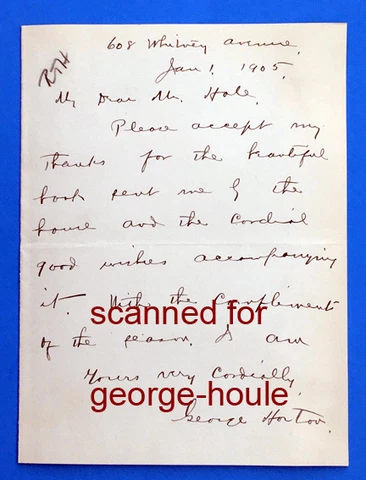 608 Whitney Avenue,
Jan 1, 1905.
RTH
My Dear Mr. Hale,
Please accept my
thanks for the beautiful
book sent me by the
house and the cordial
good wishes accompanying
it. With the compliments
of the season, I am
Yours very cordially,
George Horton.
scanned for
george-houle